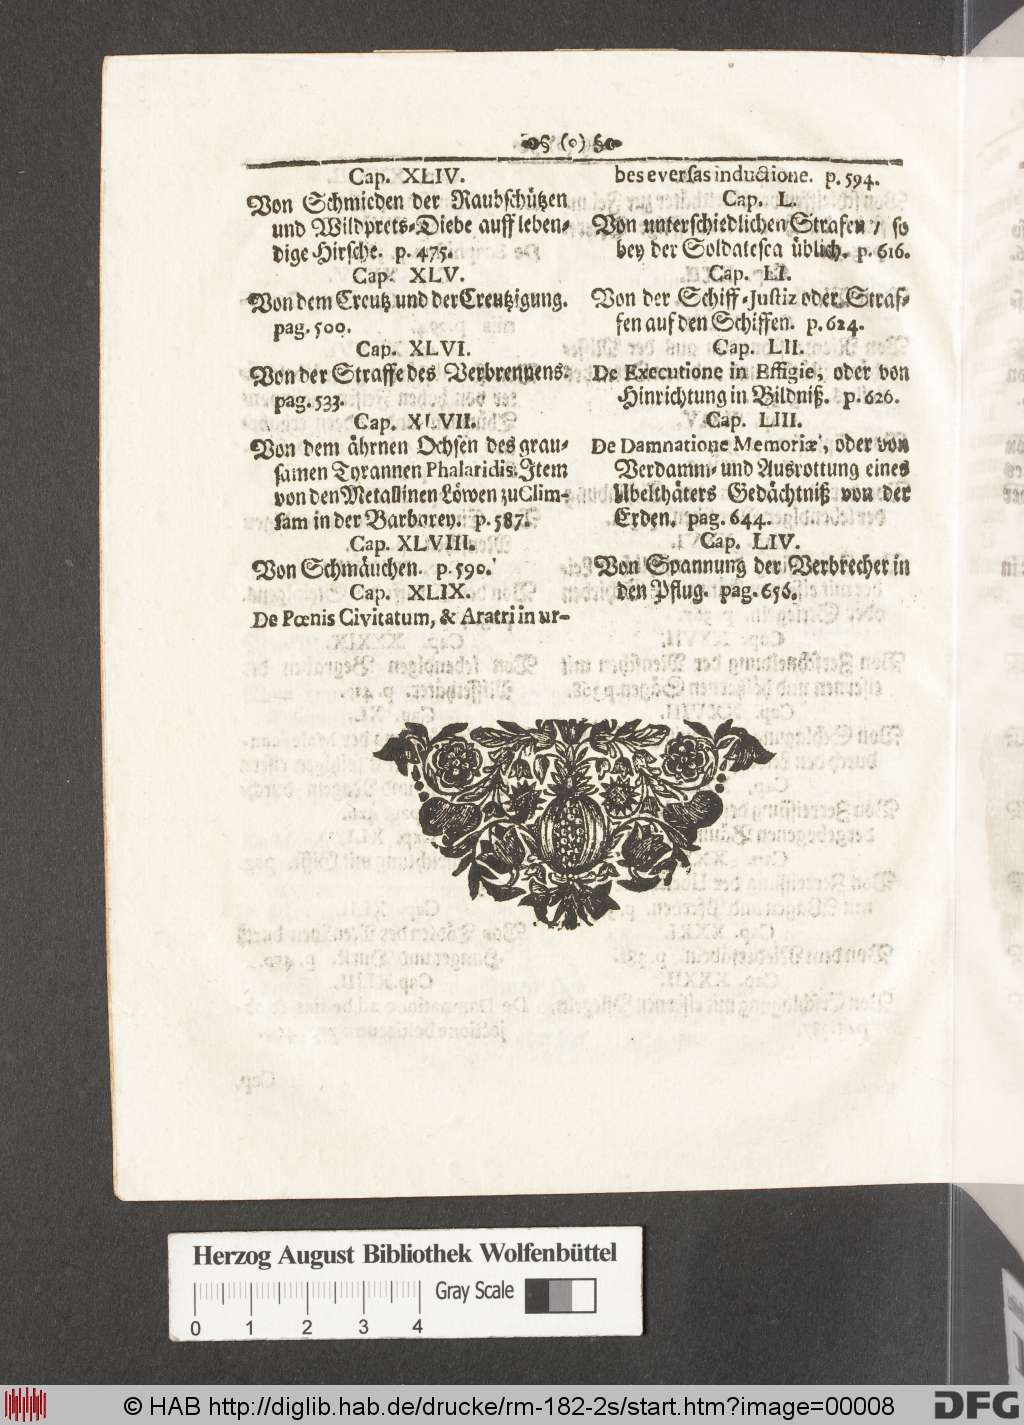 § (o) §
Cap. XLIV.
Von Schmieden der Raubschützen
und Wildprets-Diebe auff leben-
dige Hirsche. p. 475.
Cap. XLV.
Von dem Creutz und der Creutzigung.
pag. 500.
Cap. XLVI.
Von der Straffe des Verbrennens.
pag. 533.
Cap. XLVII.
Von dem ährnen Ochsen des grau-
samen Tyrannen Phalaridis. Item
von den Metallinen Löwen zu Clim-
sam in der Barborey. p. 587.
Cap. XLVIII.
Von Schmäuchen. p. 590.
Cap. XLIX.
De Pœnis Civitatum, & Aratri in ur-
bes eversas inductione. p. 594.
Cap. L.
Von unterschiedlichen Strafen / so
bey der Soldatesca üblich. p. 616.
Cap. LI.
Von der Schiff-Justiz oder Straf-
fen auf den Schiffen. p. 624.
Cap. LII.
De Executione in Effigie, oder von
Hinrichtung in Bildniß. p. 626.
Cap. LIII.
De Damnatione Memoriæ, oder von
Verdamm- und Ausrottung eines
Ubelthäters Gedächtniß von der
Erden. pag. 644.
Cap. LIV.
Von Spannung der Verbrecher in
den Pflug. pag. 656.
Herzog August Bibliothek Wolfenbüttel
Gray Scale
0 1 2 3 4
© HAB http://diglib.hab.de/drucke/rm-182-2s/start.htm?image=00008
DFG